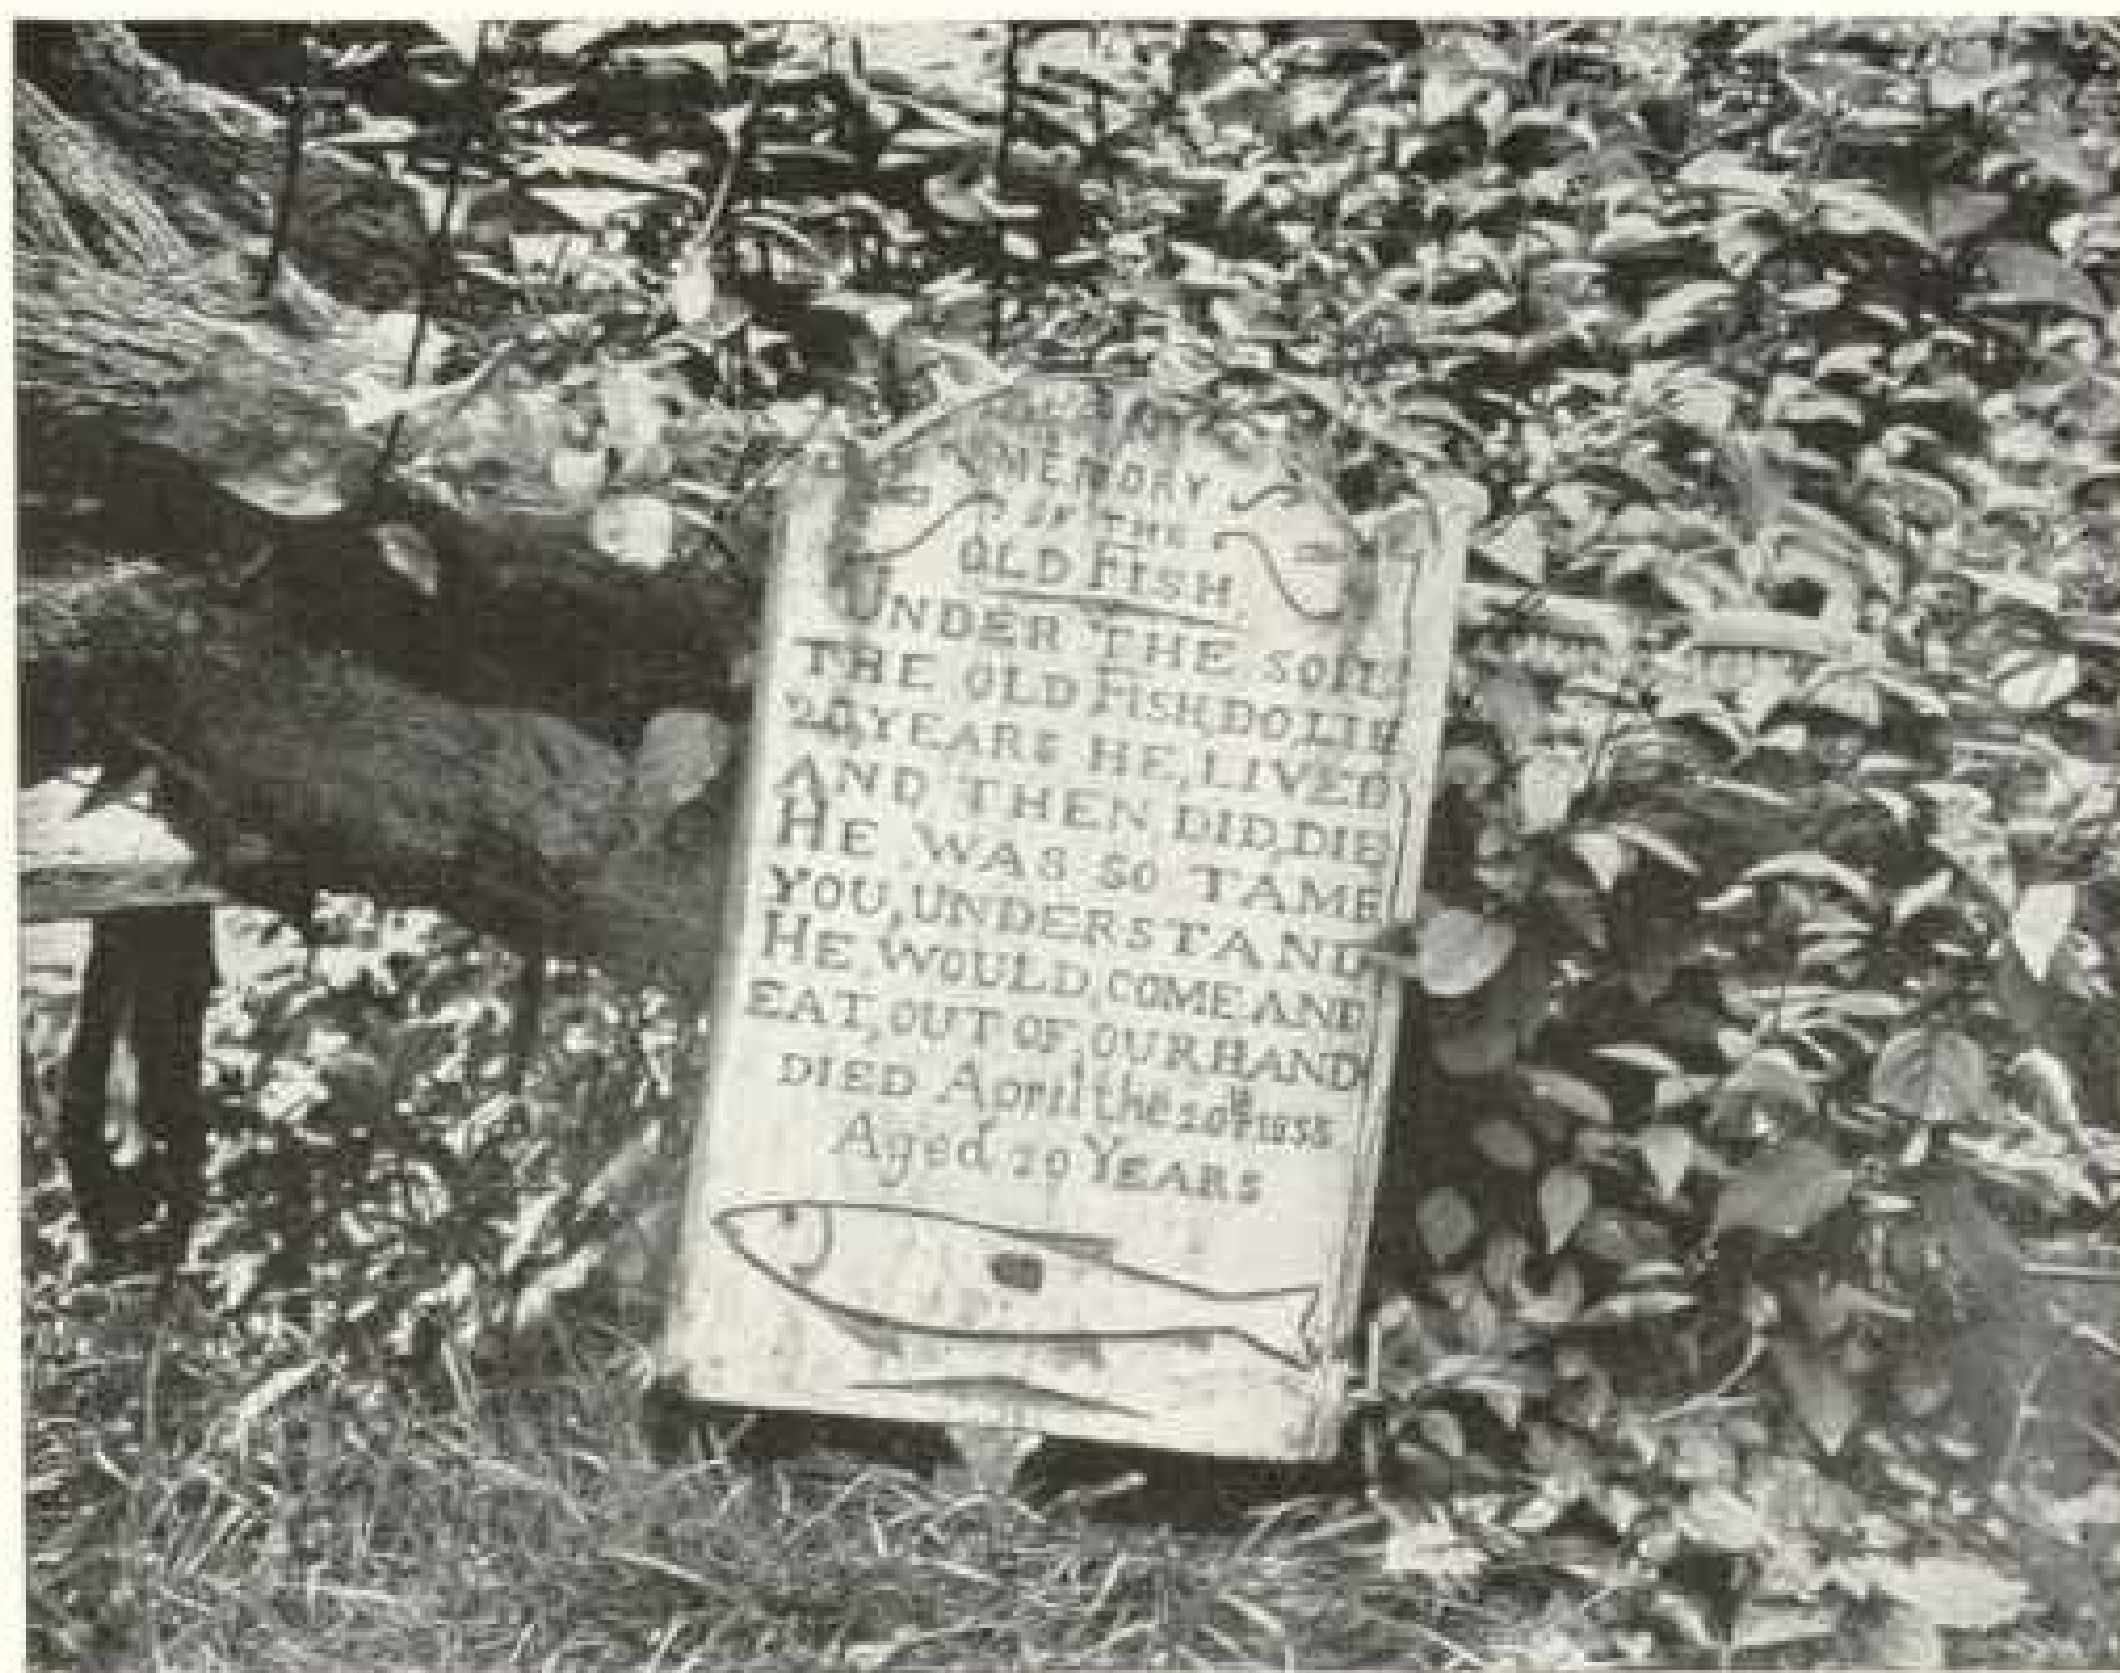 MEMORY
OF THE
OLD FISH.
UNDER THE SOIL
THE OLD FISH,DO,LIE
20,YEARS HE,LIVED
AND THEN,DID,DIE
HE WAS SO TAME
YOU,UNDERSTAND
HE,WOULD,COME AND
EAT,OUT OF,OUR HAND
DIED April the 20th 1855
Aged 20 YEARS